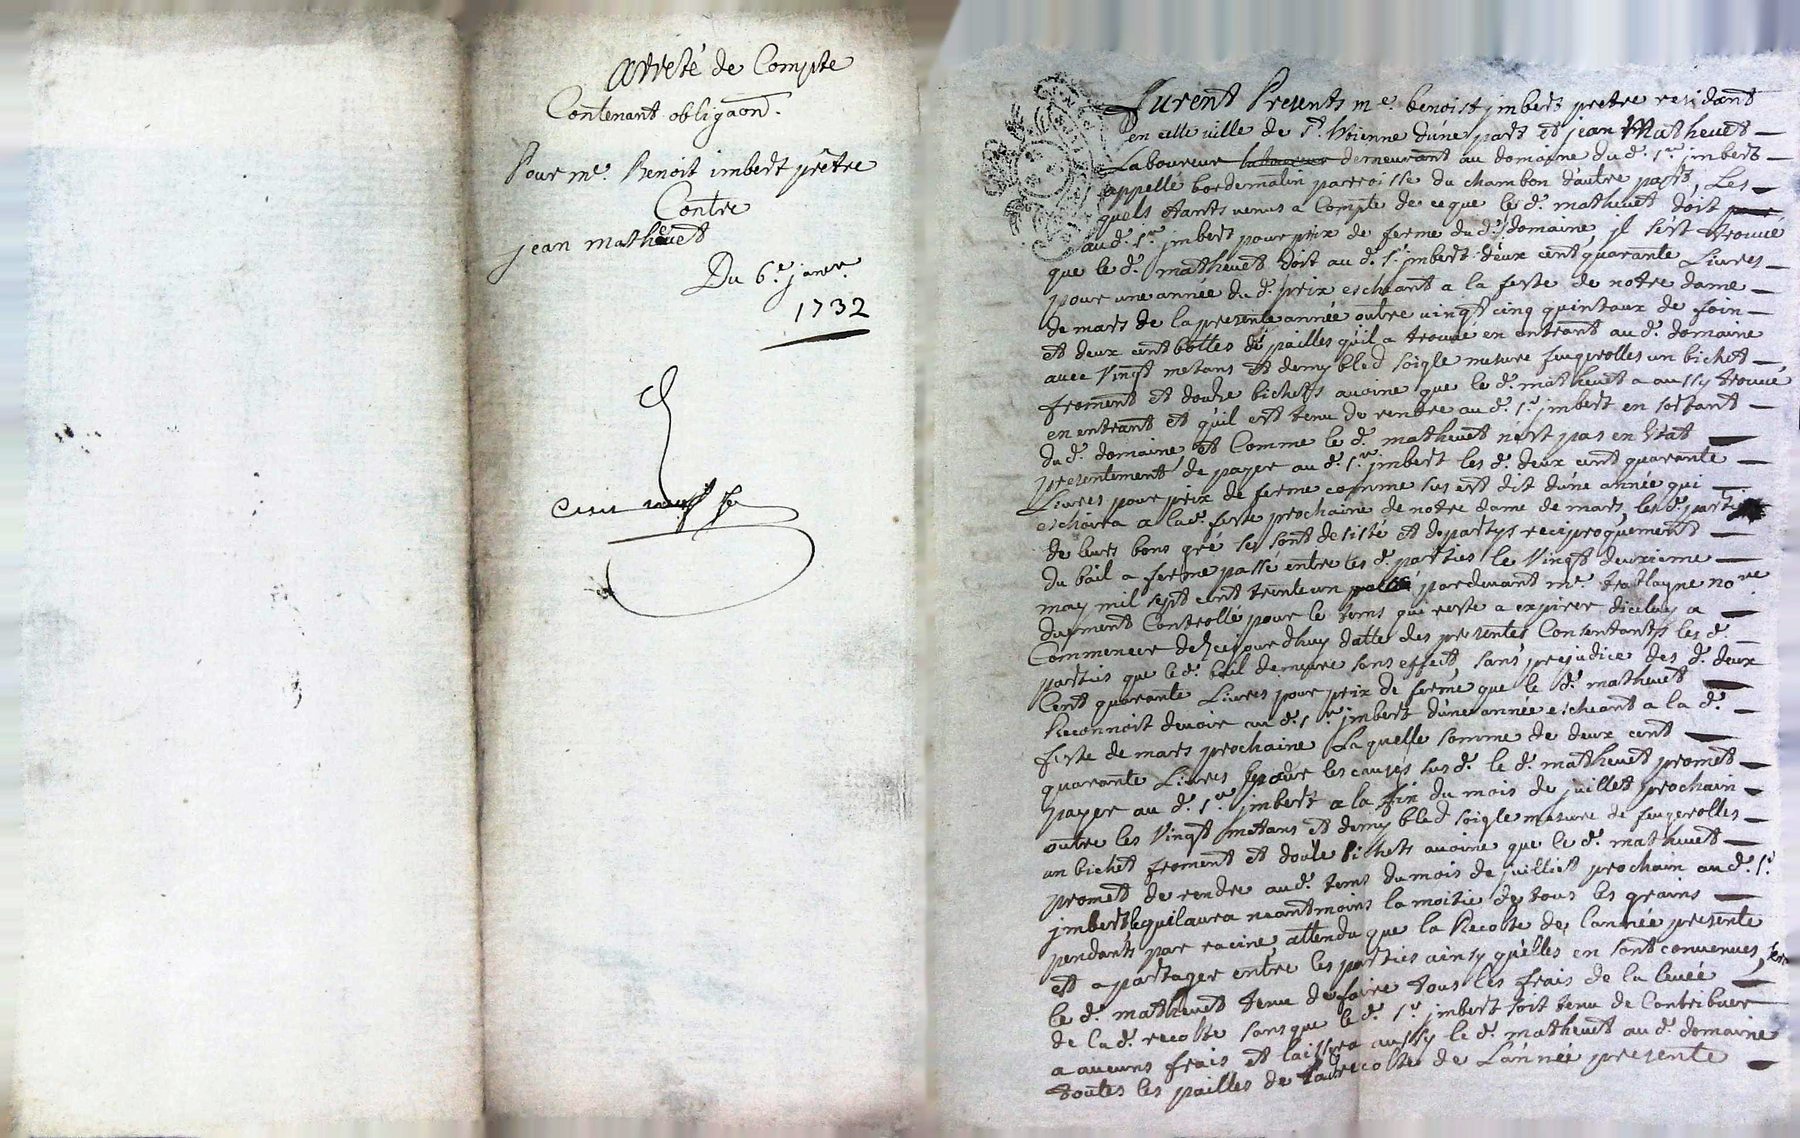 arreté de Compte
Contenant obligaon.
Pour me. Benoit imbert prêtre
Contre
jean matheuet
Du 6e. janer.
1732
Furent Presents me. benoist jmbert pretre residant
en cette ville de st. Etienne dune part et jean Matheuet
Laboureur demeurant au domaine du d. sr. jmbert
appellé bordematin parroisse du chambon d'autre part, Les
quels étants venus a Compte de ce que le d. matheuet doit
au d. sr. jmbert pour prix de ferme du d. domaine, jl sest trouué
que le d. matheuet doit au d. sr. jmbert deux cent quarante Liures
pour une année du d. prix escheant a la feste de notre dame
de mars de la presente année outre uingt cinq quintaux de foin
et deux cent bottes de pailles quil a trouué en entrant au d. domaine
auec Vingt metans et demy bled soigle mesure feugerolles un bichet
froment et douze bichets auoine que le d. matheuet a aussy trouué
en entrant et quil est tenu de rendre au d. sr. jmbert en sortant
du d. domaine, et Comme le d. matheuet n'est pas en Etat
presentement de payer au d. sr. jmbert les d. deux cent quarante
Liures pour prix de ferme comme sus est dit d'une année qui
eschoira a la d. feste prochaine de notre dame de mars, les d. parties
de leurs bons gré se sont desisté et departys reciproquement
du bail a ferme passé entre les d. parties le Vingt deuxieme
may mil sept cent trente un pardeuant me. nore
duement Controllé pour le tems qui reste a expirer diceluy a
Commencer de cejourdhuy datte des presentes Consentants les d.
parties que le d. bail demeure sans effect, sans prejudice des d. deux
Cent quarante Liures pour prix de ferme que le d. matheuet
Reconnoit deuoir au d. sr. jmbert d'une année escheant a la d.
feste de mars prochaine Laquelle somme de deux cent
quarante Liures pour les causes sus d. le d. matheuet promet
payer au d. sr. jmbert a la fin du mois de juillet prochain
outre les Vingt metans et demy bled soigle mesure de feugerolles
un bichet froment et douze bichets auoine que le d. matheuet
promet de rendre au d. tems du mois de juilliet prochain au d. sr.
jmbert lequel aura neantmoins la moitie de tous les grains
pendants par racine, attendu que la Recolte de l'année presente
est a partager entre les parties ainsy quelles en sont conuenues, sera
le d. matheuet tenu de faire tous les frais de la leuée
de la d. recolte sans que le d. sr. jmbert soit tenu de Contribuer
a aucuns frais et laissera aussy le d. matheuet au d. domaine
toutes les pailles de la recolte de L'année presente